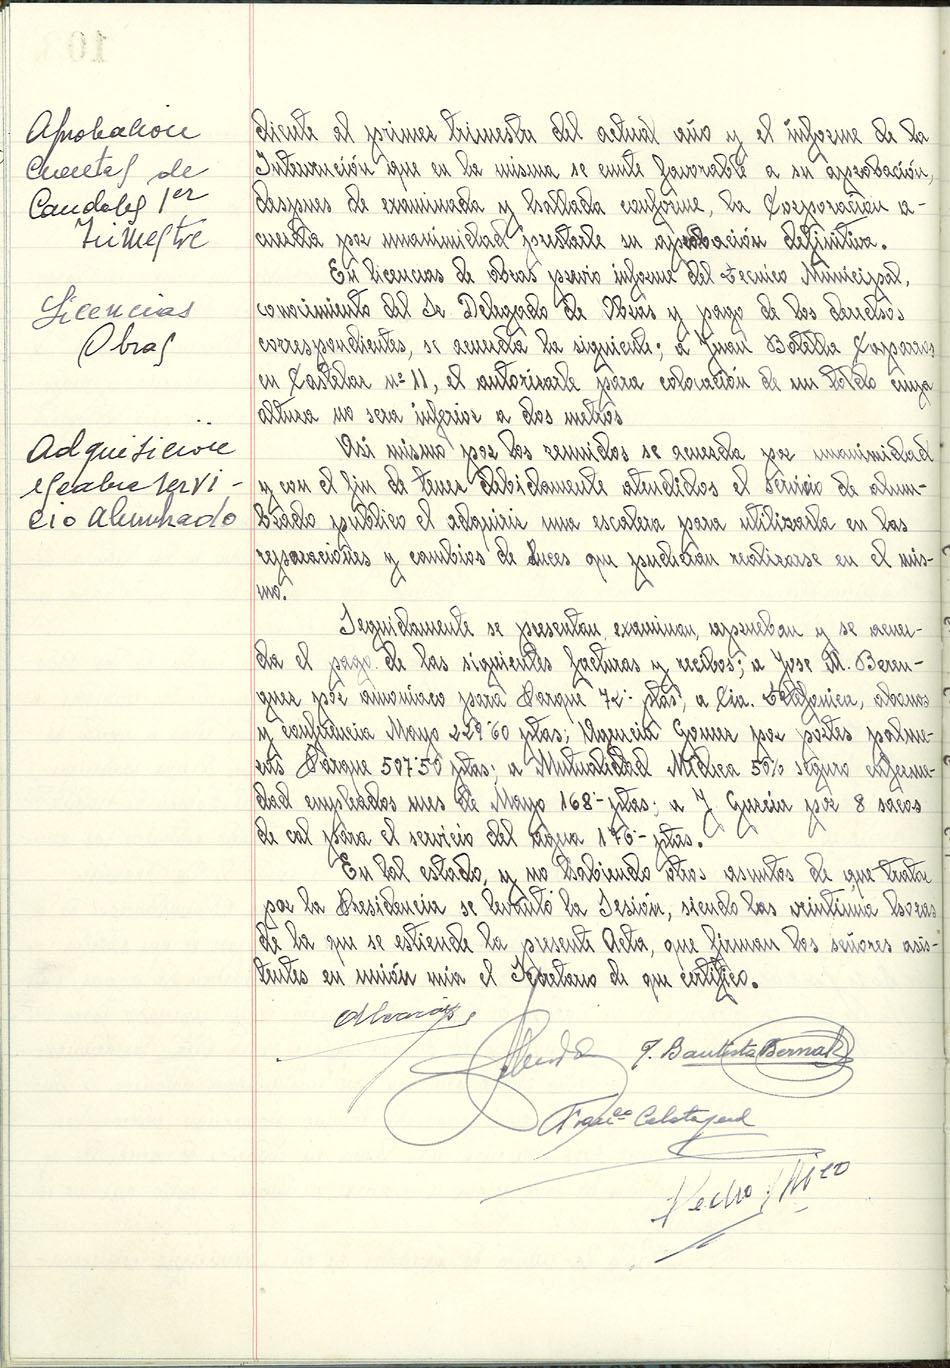 Aprobacion
Cuentas de
Caudales 1er
Trimestre
diente al primer trimestre del actual año y el informe de la
Intervención que en la misma se emite favorable a su aprobación,
despues de examinada y hallada conforme, la Corporación a-
cuerda por unanimidad prestarle su aprobación definitiva.
Licencias
Obras
En licencias de obras previo informe del tecnico Municipal,
conocimiento del Sr Delegado de Obras y pago de los derechos
correspondientes, se acuerda la siguiente; a Juan Botella Caparros
en Castelar nº 11, el autorizarle para colocación de un toldo cuya
altura no sera inferior a dos metros
Adquisicion
escalera servi-
cio alumbrado
Asi mismo por los reunidos se acuerda por unanimidad
y con el fin de tener debidamente atendidos el servicio de alum-
brado publico el adquirir una escalera para utilizarla en las
reparaciones y cambios de luces que pudieran realizarse en el mis-
mo.
Seguidamente se presentan, examinan, aprueban y se acuer-
da el pago de las siguientes facturas y recibos; a Jose M. Beren-
guer por amoníaco para Parque 72'- ptas; a Cia. Telefonica, abonos
y conferencia Mayo 229'60 ptas; Agencia Gomez por portes palme-
ras Parque 507'50 ptas; a Mutualidad Médica 50% seguro enferme-
dad empleados mes de Mayo 168'- ptas; a J. Garcia por 8 sacos
de cal para el servicio del agua 176'- ptas.
En tal estado, y no habiendo otros asuntos de que tratar
por la Presidencia se levantó la Sesión, siendo las veintiuna horas
de la que se estiende la presente Acta, que firman los señores asis-
tentes en unión mia el Secretario de que certifico.
J. Bautista Bernal
Franco Calatayud
Pedro Mico